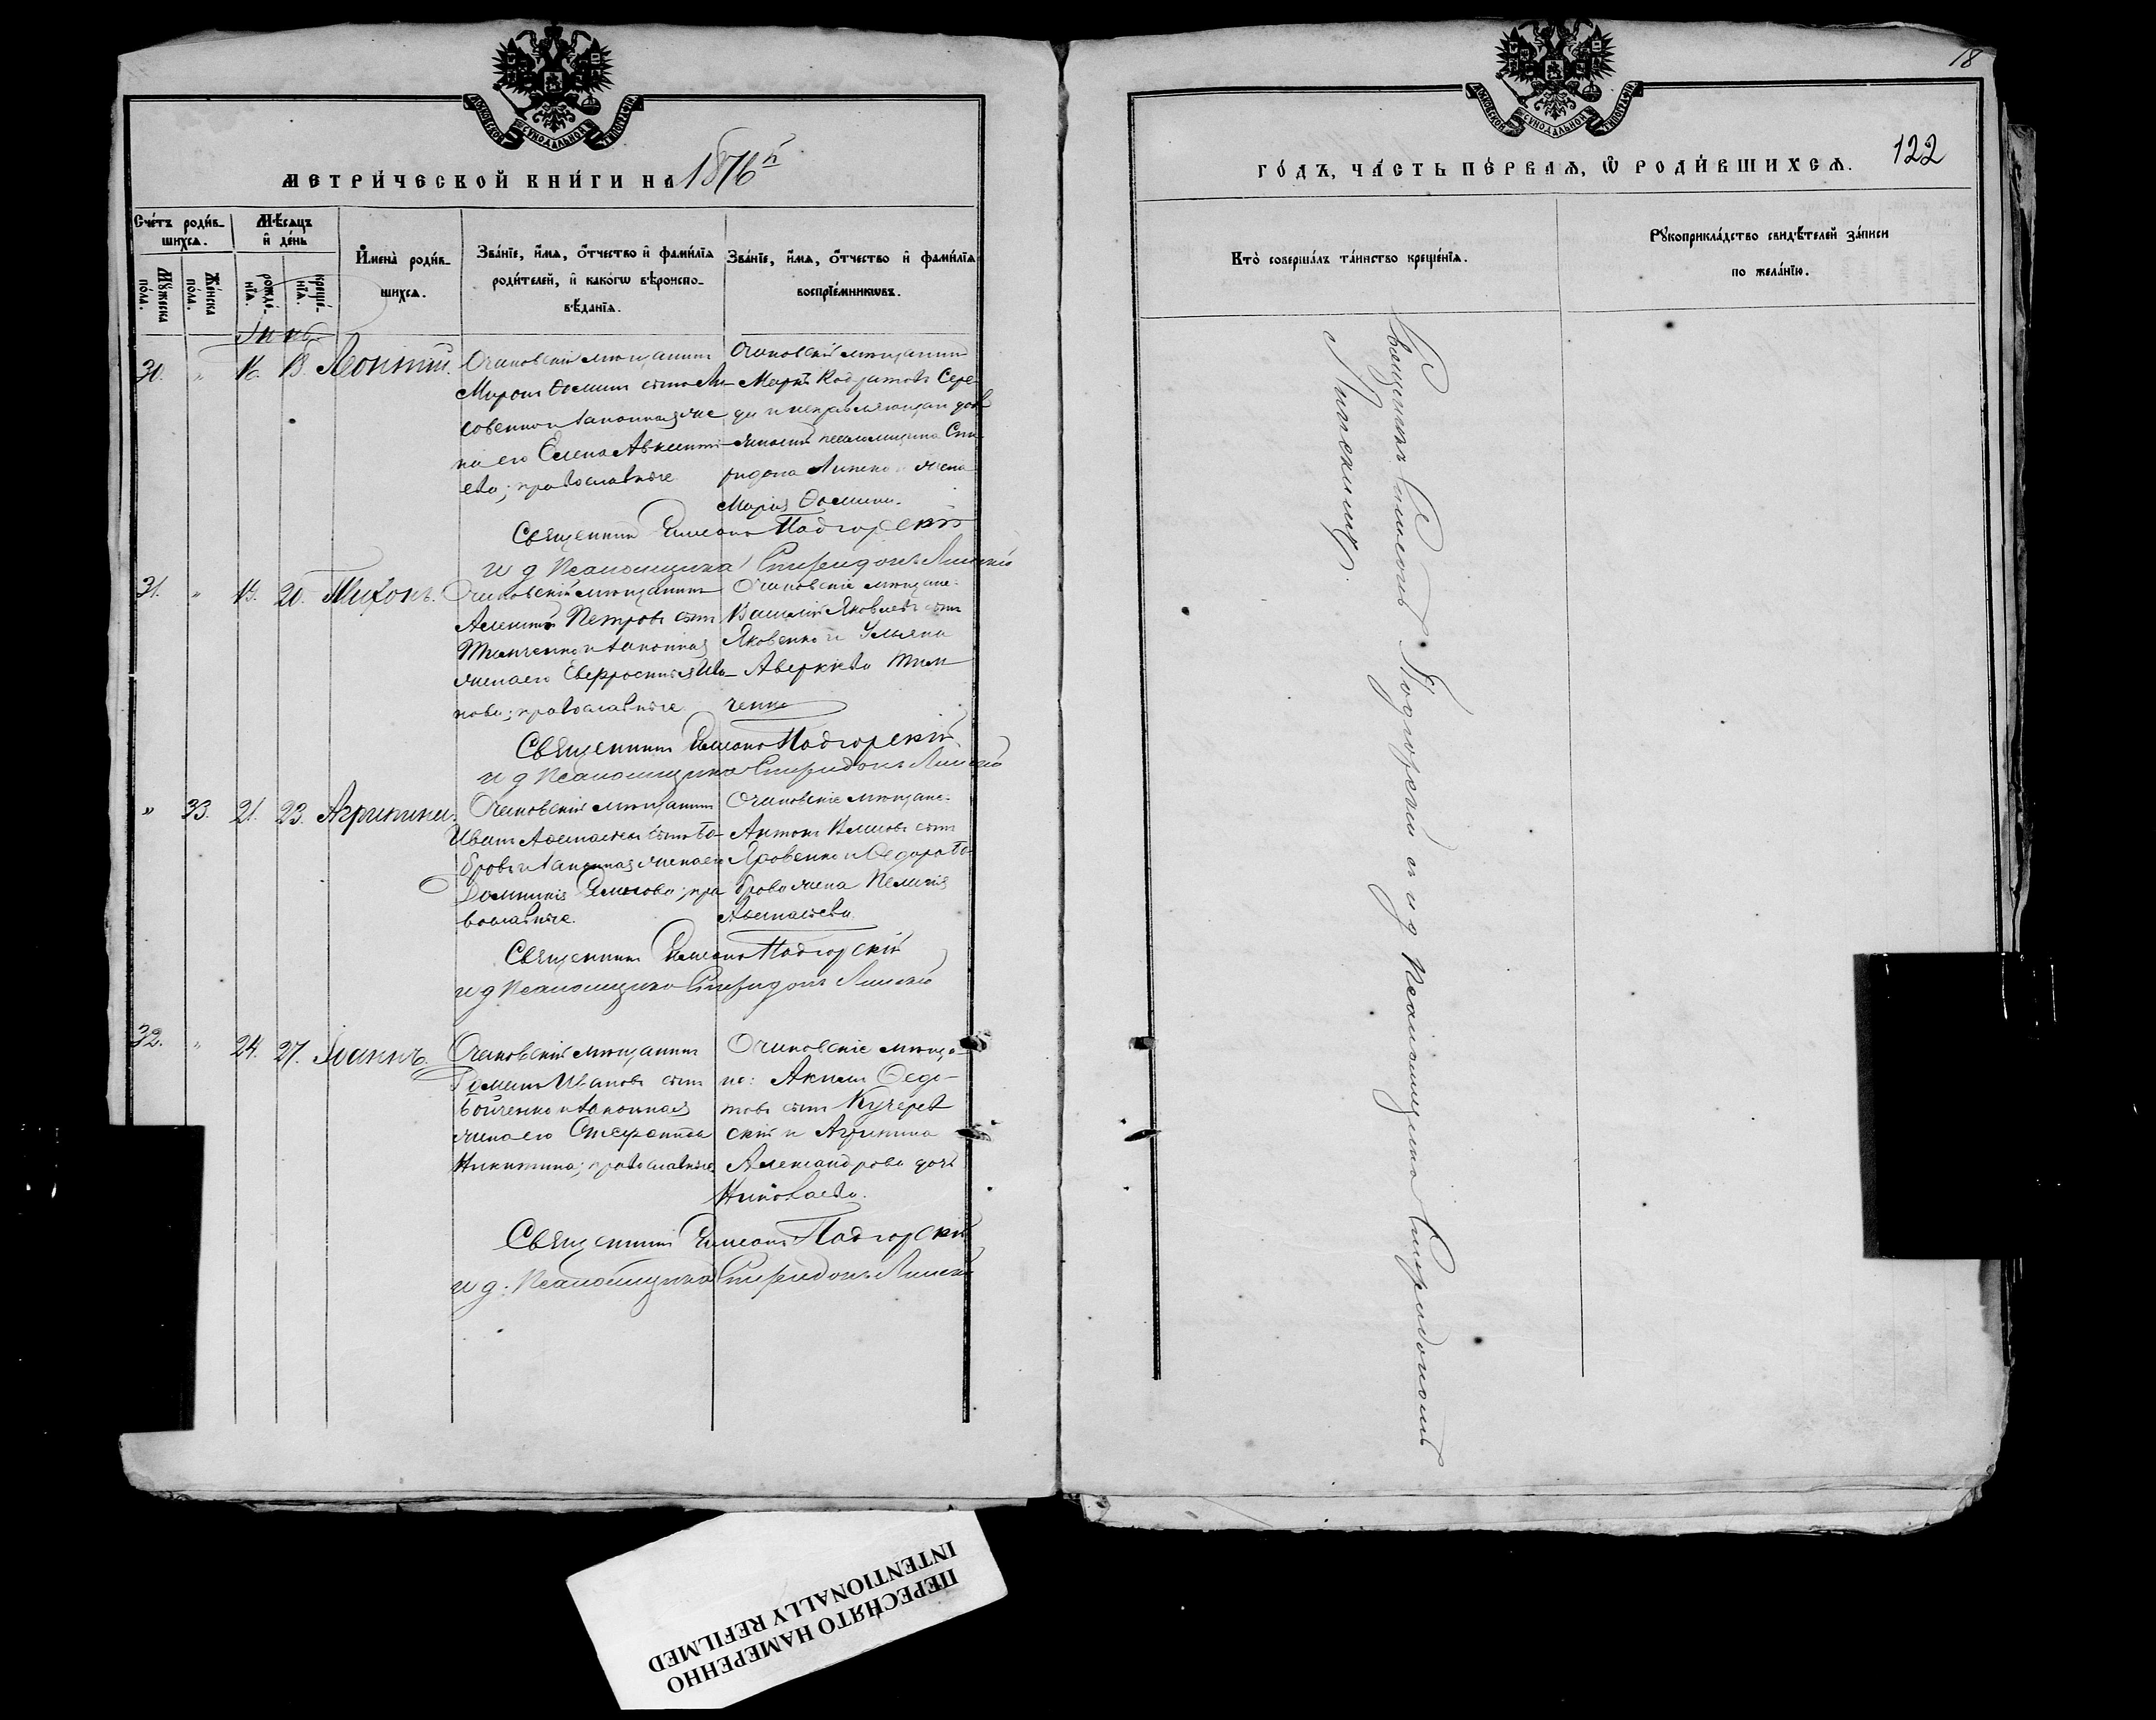 МОСКОВСКОЙ СѴНОДАЛЬНОЙ ТИПОГРАФІИ
МЕТРИ́ЧЕСКОЙ КНИ́ГИ НА 1876й
Сче́тъ роди́в-
шихсѧ.
Мꙋ́жеска
по́ла.
Же́нска
по́ла.
Мѣ́сѧцъ
и҆ де́нь
рожде́-
нїѧ.
креще́-
нїѧ.
И҆мена̀ роди́в-
шихсѧ.
Зва́нїе, и҆́мѧ, ѻ҆́тчество и҆ фами́лїѧ
роди́телей, и҆ како́гѡ вѣроиспо-
вѣ́данїѧ.
Зва́нїе, и҆́мѧ, ѻ҆́тчество и҆ фами́лїѧ
воспрїе́мникѡвъ.
30. " 16. 18. Леонтій.
Очаковскій мѣщанинъ
Миронъ Ѳоминъ сынъ
и законная же
на его Елена Авксенті
ева; православные
Очаковскій мѣщанинъ
Маркъ сере
да и исправляющаго долж
псаломщика Спи
ридона жена
Марія Ѳомина.
Священникъ Симеонъ Подгорскій
и д Псаломщика Спиридонъ
31. " 19. 20. Тихонъ.
Очаковскій мѣщанинъ
Алексѣй Петровъ сынъ
Тимченко и законная
жена его Евфросинія Ива-
нова; православные
Очаковскіе мѣщане:
Василій Яковлевъ сынъ
Яковенко и Ульяна
Аверкіева Тим
ченко
Священникъ Симеонъ Подгорскій
и д Псаломщика Спиридонъ
" 33. 21. 23. Агрипина.
Очаковскій мѣщанинъ
Иванъ Аѳанасіевъ сынъ Бо-
бровъ и законная жена его
Домникія; пра
вославные.
Очаковскіе мѣщане:
Антонъ сынъ
Яровенко и Ѳедора Бо
брова жена Пелагія
Аѳанасіева
Священникъ Симеонъ Подгорскій
и д Псаломщика Спиридонъ
32. " 24. 27. Іоаннъ.
Очаковскій мѣщанинъ
Иванов сынъ
Бойченко и законная
жена его Стефанида
Никитина; православные
Очаковскіе мѣща-
не: Акимъ Ѳедо-
товъ сынъ Кучерев
скій и Агрипина
Александрова дочь
Николаева.
Священникъ Симеонъ Подгорскій
и д: Псаломщика Спиридонъ
18
122
МОСКОВСКОЙ СѴНОДАЛЬНОЙ ТИПОГРАФІИ
ГО́ДЪ, ЧА́СТЬ ПЕ́РВАѦ, Ѡ҆ РОДИ́ВШИХСѦ.
Кто̀ соверша́лъ та́инство креще́нїѧ.
Рꙋкоприкла́дство свидѣ́телей за́писи
по жела́нїю.
Священникъ Симеонъ Подгорскій съ и д Псаломщика Спиридономъ
ПЕРЕСНЯТО НАМЕРЕННО
INTENTIONALLY REFILMED